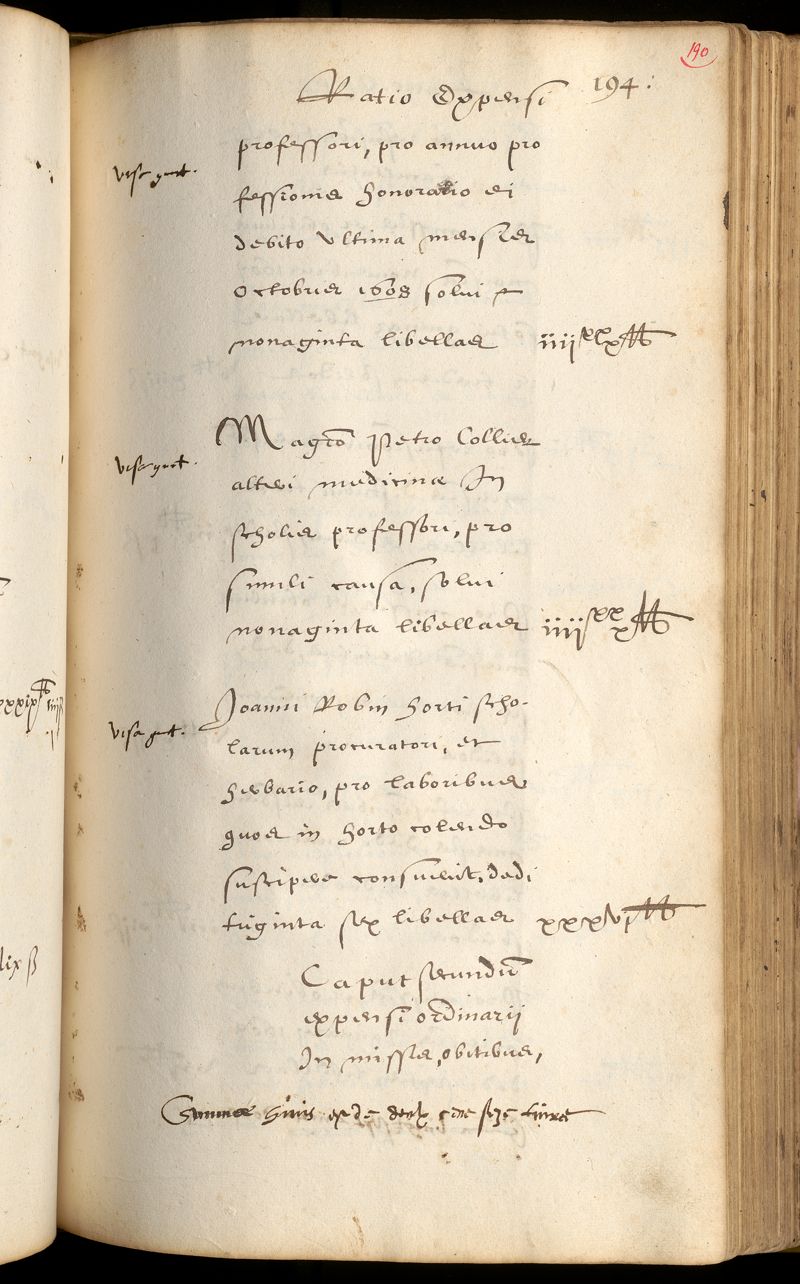 190
Ratio Expensi 194.
professori, pro annuo pro
visa quit.
fessionis honorario ei
debito ultima mensis
Octobris 1608 solui
nonaginta libellas iiii^xx x ℔
Mag̅ro Petro Collier
visa quit.
alteri medicinæ In
scholis professori, pro
simili causa, solui
nonaginta libellas iiii^xx x ℔
Joanni Robin horti scho-
visa quit.
larum procuratori, et
herbario, pro laboribus
quos in horto colendo
suscipere consuevit, dedi
triginta sex libellas xxxvj ℔
xxxix ℔
lix ß
Caput secundū
expensi ordinarii
In missis, obitibus,
Summa huius est de deux cens seize livres